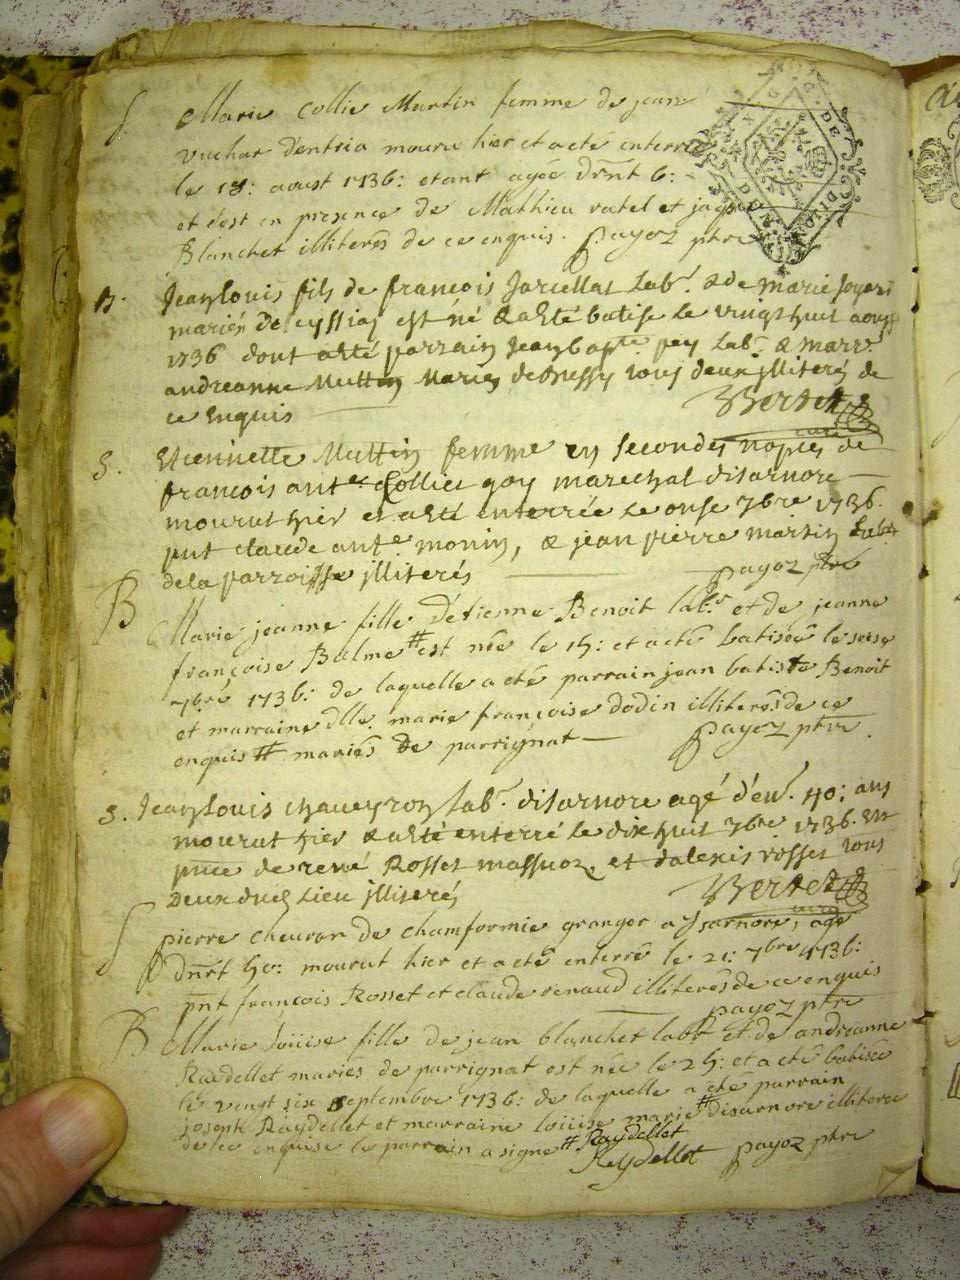 S. Marie Collie Martin femme de jean
Vuchar d'entria mouru hier et a eté enterrée
le 18: aoust 1736: etant agée d'r̃nt 6:
et c'est en presence de Mathieu ratel et jaque
Blanchet illiterés de ce enquis. payoz ptre
DE DIJON
B. Jean louis fils de francois Jarcellat Lab.r & de marie
mariés est né & a esté batisé Le vingt huit aoust
1736 dont a esté parrain Jean bap.te pey Lab.r & marr.e
andreanne Muttin Mariés de Bussy tous deux illiterés de
ce Enquis Bertet curé
S. Etiennette Muttin femme en secondes nopces de
francois ant.e Collier goy marechal disarnore
mourut hier et a esté enterrée Le onse 7bre 1736.
pnt claude ant.e monin, & jean pierre martin Labr
de la parroisse illiterés payoz ptre
B Marie jeanne fille d'etienne Benoit lab.r et de jeanne
françoise Balme # est née le 15: et a eté batisée le seise
7bre 1736: de laquelle a eté parrain jean batiste Benoit
et marraine dlle marie françoise dodin illiterés de ce
enquis # mariés de parrignat payoz ptre.
S. Jean louis chaveyron Lab.r disarnore agé d'en.v 40: ans
mourut hier & a esté enterré Le dix huit 7bre 1736. en
pnce de rené Rosset massuoz, et d'alexis rosset tous
Deux dud Lieu illiterés Bertet curé
S pierre chevron de chamformie granger a Isarnore, agé
d'nr̃t 50: mourut hier et a eté enterré le 21: 7bre 1736:
pnt françois Rosset et claude renaud illiterés de ce enquis
payoz ptre
B Marie Loüise fille de jean blanchet labr et de andreanne
Raydellet mariés de parrignat est née le 25: et a eté batisée
le vingt six septembre 1736: de laquelle a eté parrain
joseph Raydellet et marraine loüise marie # disarnore illiterée
de ce enquise le parrain a signé # Raydellet
Reydellet payoz ptre